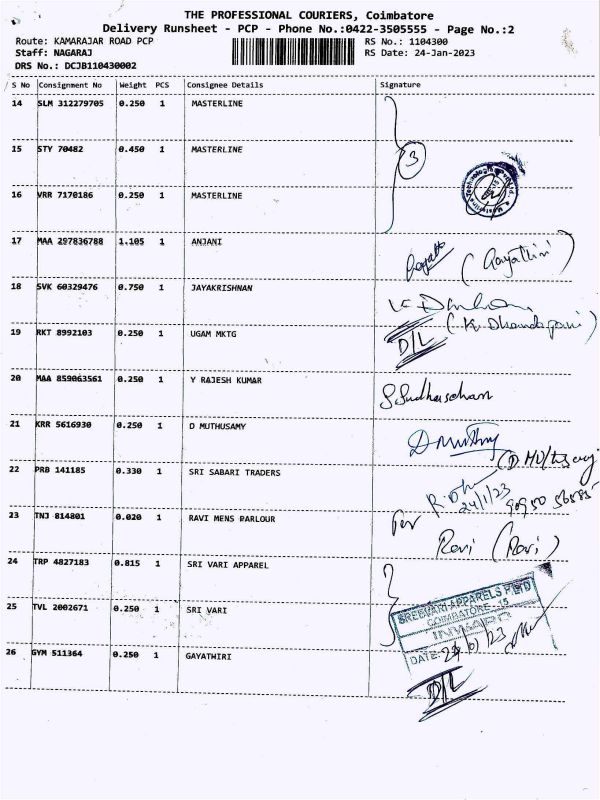 THE PROFESSIONAL COURIERS, Coimbatore
Delivery Runsheet - PCP - Phone No.:0422-3505555 - Page No.:2
Route: KAMARAJAR ROAD PCP RS No.: 1104300
Staff: NAGARAJ RS Date: 24-Jan-2023
DRS No.: DCJB110430002
S No Consignment No Weight PCS Consignee Details Signature
14 SLM 312279705 0.250 1 MASTERLINE
15 STY 70482 0.450 1 MASTERLINE
3
16 VRR 7170186 0.250 1 MASTERLINE
17 MAA 297836788 1.105 1 ANJANI
(Gayathiri)
18 SVK 60329476 0.750 1 JAYAKRISHNAN
(K. Dhandapani)
19 RKT 8992103 0.250 1 UGAM MKTG D/L
20 MAA 859063561 0.250 1 Y RAJESH KUMAR
S. Sudharsanam
21 KRR 5616930 0.250 1 D MUTHUSAMY
22 PRB 141185 0.330 1 SRI SABARI TRADERS
24/1/23
23 TNJ 814801 0.020 1 RAVI MENS PARLOUR
Ravi (Ravi)
24 TRP 4827183 0.815 1 SRI VARI APPAREL
SREEVARI APPARELS P LTD
COIMBATORE - 15
25 TVL 2002671 0.250 1 SRI VARI
INWARD
DATE:
26 GYM 511364 0.250 1 GAYATHIRI
D/L